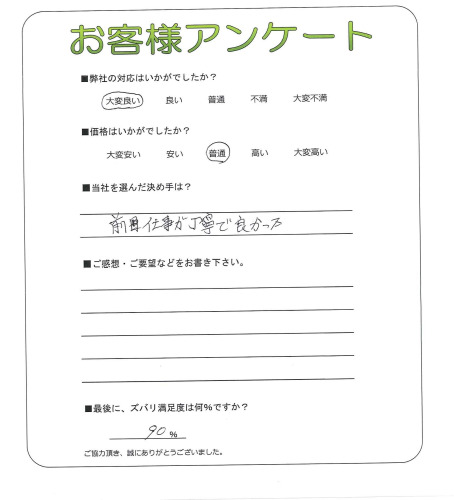 お客様アンケート
■弊社の対応はいかがでしたか?
大変良い 良い 普通 不満 大変不満
■価格はいかがでしたか?
大変安い 安い 普通 高い 大変高い
■当社を選んだ決め手は?
前回仕事が丁寧で良かった
■ご感想・ご要望などをお書き下さい。
■最後に、ズバリ満足度は何%ですか?
90 %
ご協力頂き、誠にありがとうございました。